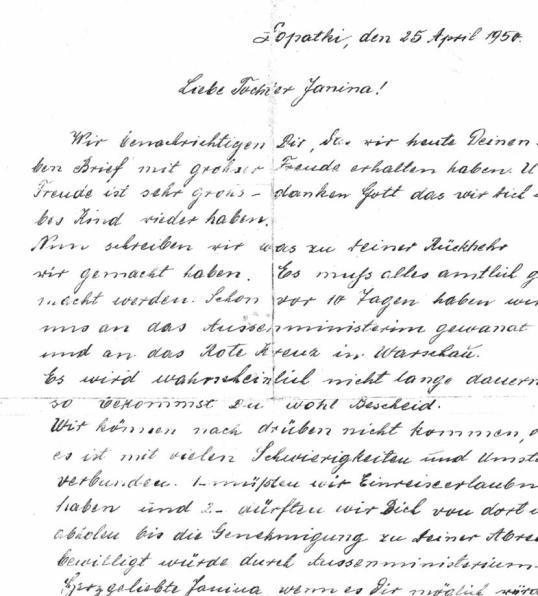 Łopatki, den 25 April 1950.
Liebe Tochter Janina!
Wir benachrichtigen Dir, das wir heute Deinen
ben Brief mit grohser Freude erhalten haben. U
Freude ist sehr grohs - danken Gott das wir dich
bes Kind wieder haben.
Nun schreiben wir was zu deiner Rückkehr
wir gemacht haben. Es muß alles amtlich g
macht werden. Schon vor 10 Tagen haben wir
uns an das Aussenministerim gewanat
und an das Rote Kreuz in Warschau.
Es wird wahrscheinlich nicht lange dauern
so bekommst Du wohl Bescheid.
Wir können nach drüben nicht kommen,
es ist mit vielen Schwierigkeiten und Umstä
verbunden. 1- müßten wir Einreiseerlaubn
haben und 2- dürften wir Dich von dort
abholen bis die Genehmigung zu deiner Abrei
bewilligt würde durch Aussenministerium.
Herzgeliebte Janina, wenn es Dir möglich würd